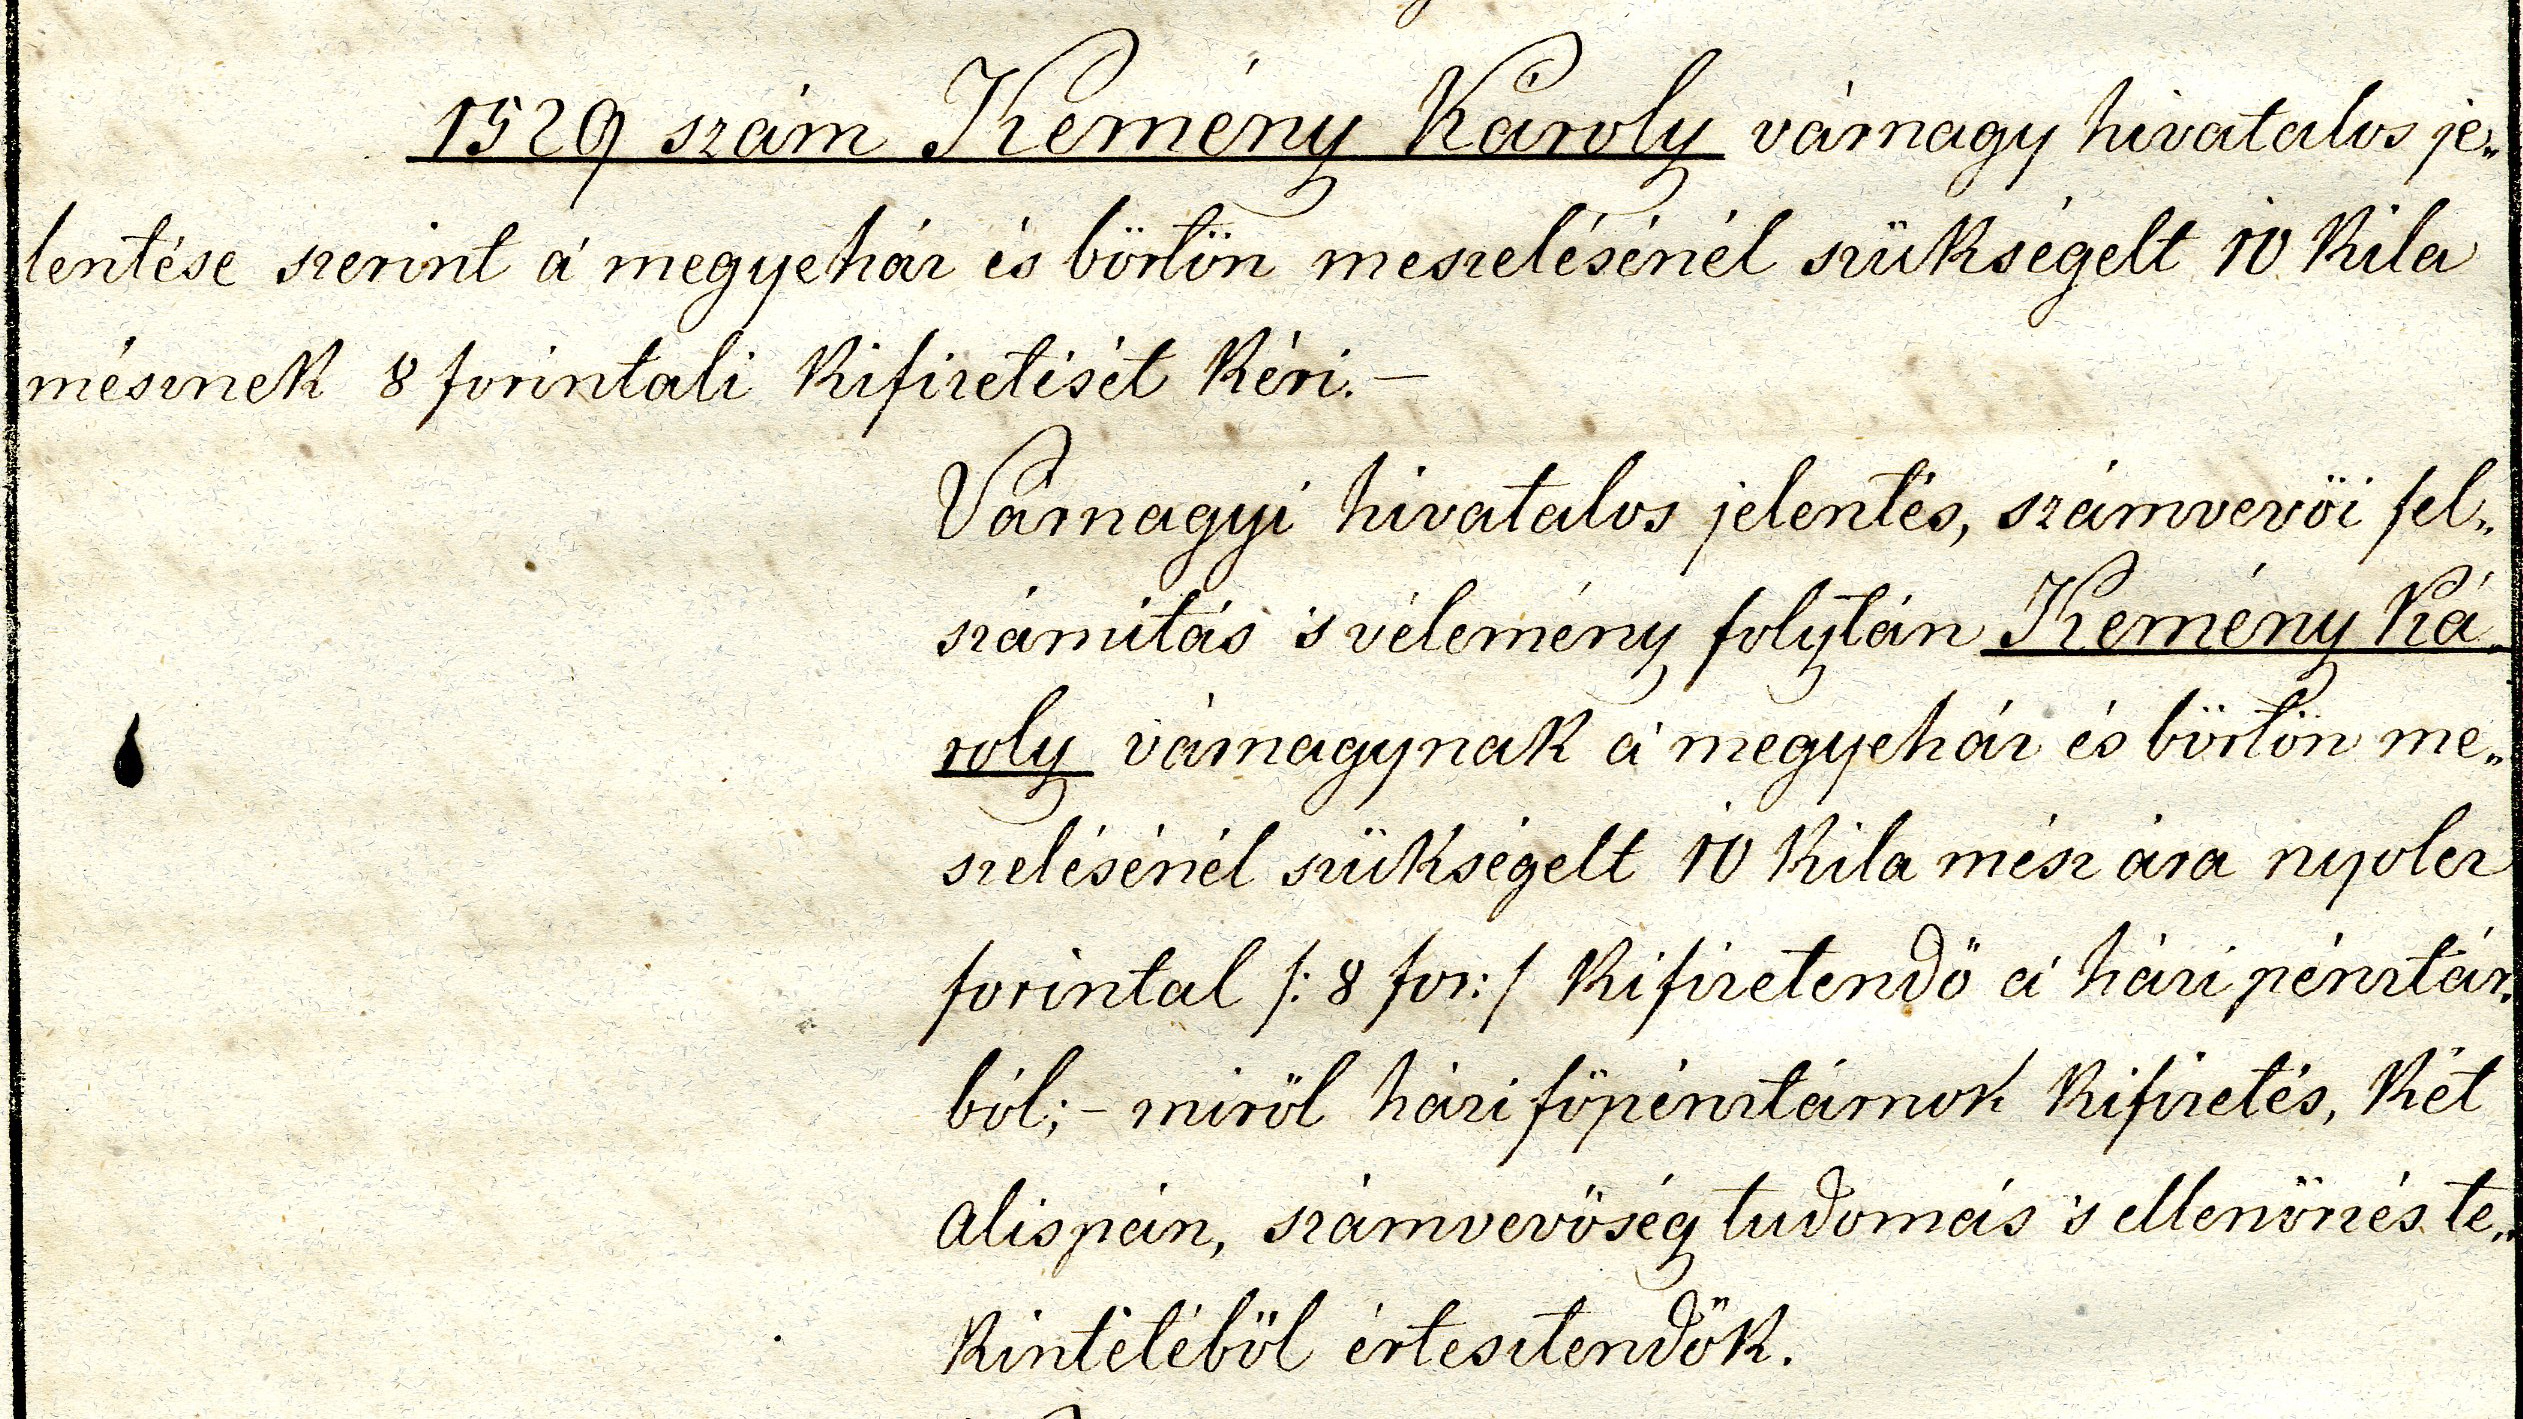 1529 szám Kemény Károly várnagy hivatalos je„
lentése szerint a' megyeház és börtön meszelésénél szükségelt 10 kila
mésznek 8 forintali kifizetését kéri. —
Várnagyi hivatalos jelentés, számvevöi fel„
számitás 's vélemény folytán Kemény Ká„
roly várnagynak a' megyeház és börtön me„
szelésénél szükségelt 10 kila mész ára nyolcz
forintal /: 8 for: / kifizetendö a' házi pénztár„
ból; – miröl házi föpénztárnok kifizetés, két
alispán, számvevöség tudomás 's ellenörzés te„
kintetéböl értesitendök.